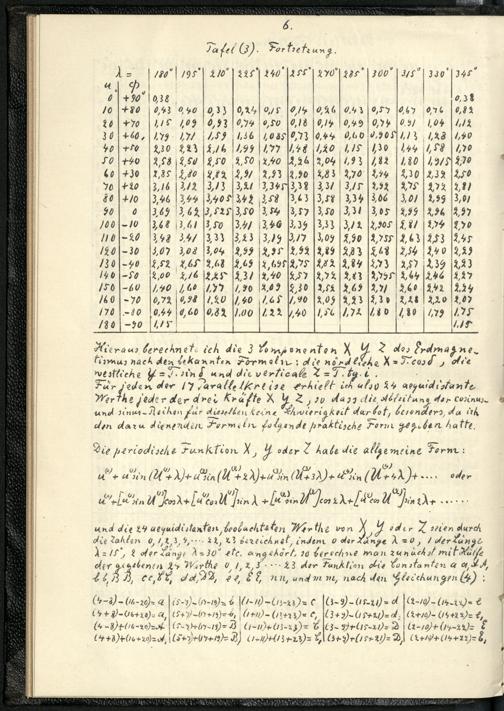 6.
Tafel (3). Fortsetzung.
λ = 180° 195° 210° 225° 240° 255° 270° 285° 300° 315° 330° 345°
u φ
0 +90° 0,38 0.38
10 +80 0,43 0,40 0,33 0,24 0,15 0,14 0,26 0,43 0,57 0,67 0,76 0,82
20 +70 1,15 1,09 0,93 0,74 0,50 0,18 0,14 0,49 0,74 0,91 1,04 1,12
30 +60 1,79 1,71 1,59 1,36 1,085 0,73 0,44 0,60 0,905 1,13 1,28 1,40
40 +50 2,30 2,23 2,16 1,99 1,77 1,48 1,20 1,15 1,30 1,44 1,58 1,70
50 +40 2,58 2,50 2,50 2,50 2,40 2,26 2,04 1,93 1,82 1,80 1,915
60 +30 2,85 2,80 2,82 2,91 2,93 2,90 2,83 2,70 2,44 2,30 2,32 2,50
70 +20 3,16 3,12 3,13 3,21 3,345 3,38 3,31 3,15 2,92 2,75 2,72 2,81
80 +10 3,46 3,44 3,405 3,42 3,58 3,63 3,58 3,34 3,06 3,01 2,99 3,01
90 0 3,69 3,62 3,525 3,50 3,54 3,57 3,50 3,31 3,05 2,99 2,96 2,97
100 -10 3,68 3,61 3,50 3,41 3,40 3,39 3,33 3,12 2,905 2,81 2,74 2,70
110 -20 3,48 3,41 3,33 3,23 3,19 3,17 3,09 2,90 2,755 2,63 2,53 2,45
120 -30 3,07 3,08 3,04 2,99 2,95 2,92 2,89 2,83 2,68 2,54 2,40 2,29
130 -40 2,52 2,65 2,68 2,69 2,695 2,75 2,82 2,84 2,73 2,57 2,39 2,23
140 -50 2,00 2,16 2,25 2,31 2,40 2,57 2,72 2,83 2,795 2,64 2,46 2,27
150 -60 1,40 1,60 1,77 1,90 2,09 2,30 2,52 2,69 2,71 2,60 2,42 2,24
160 -70 0,72 0,98 1,20 1,40 1,65 1,90 2,09 2,23 2,30 2,28 2,20 2,07
170 -80 0,44 0,60 0,82 1,00 1,22 1,40 1,56 1,72 1,80 1,80 1,79 1,75
180 -90 1,15 1.15
Hieraus berechnet ich die 3 Componenten X Y Z des Erdmagne-
tismus nach den bekannten Formeln: die nördliche X = T.cos δ, die
westliche Y = T.sin δ und die verticale Z = T.tg.i.
Für jeden der 17 Parallelkreise erhielt ich also 24 aequidistante
Werthe jeder der drei Kräfte X Y Z, so dass die Ableitung der cosinus-
und sinus-Reihen für dieselben keine Schwierigkeit darbot, besonders, da ich
den dazu dienenden Formeln folgende praktische Form gegeben hatte.
Die periodische Function X, Y oder Z habe die allgemeine Form:
oder
und die 24 aequidistanten, beobachteten Werthe von X, Y oder Z seien durch
die Zahlen 0, 1, 2, 3, 4, ... 22, 23 bezeichnet, indem 0 der Länge λ = 0, 1 der Länge
λ = 15°, 2 der Länge λ = 30° etc. angehört, so berechne man zunächst mit Hülfe
der gegebenen 24 Werthe 0, 1, 2, 3 ... 23 der Function die Constanten
nn, und m, nach den Gleichungen (4):
(4-8)-(16-20)= a (5-7)-(17-19)= b (1-11)-(13-23)= c (3-9)-(15-21)= d (2-10)-(14-22)= e
(4+8)-(16+20)= a, (5+7)-(17+19)= b, (1+11)-(13+23)= c, (3+9)-(15+21)= d, (2+10)-(14+22)= e,
(4-8)+(16-20)= A (5-7)+(17-19)= B (1-11)+(13-23)= C (3-9)+(15-21)= D (2-10)+(14-22)= E
(4+8)+(16+20)= A, (5+7)+(17+19)= B, (1+11)+(13+23)= C, (3+9)+(15+21)= D, (2+10)+(14+22)= E,